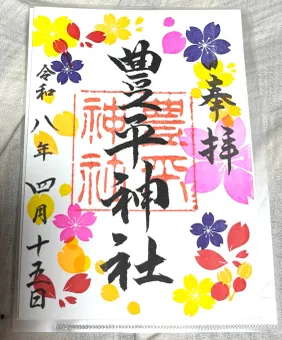 奉拝
豊平神社
豊平神社
令和八年四月十五日